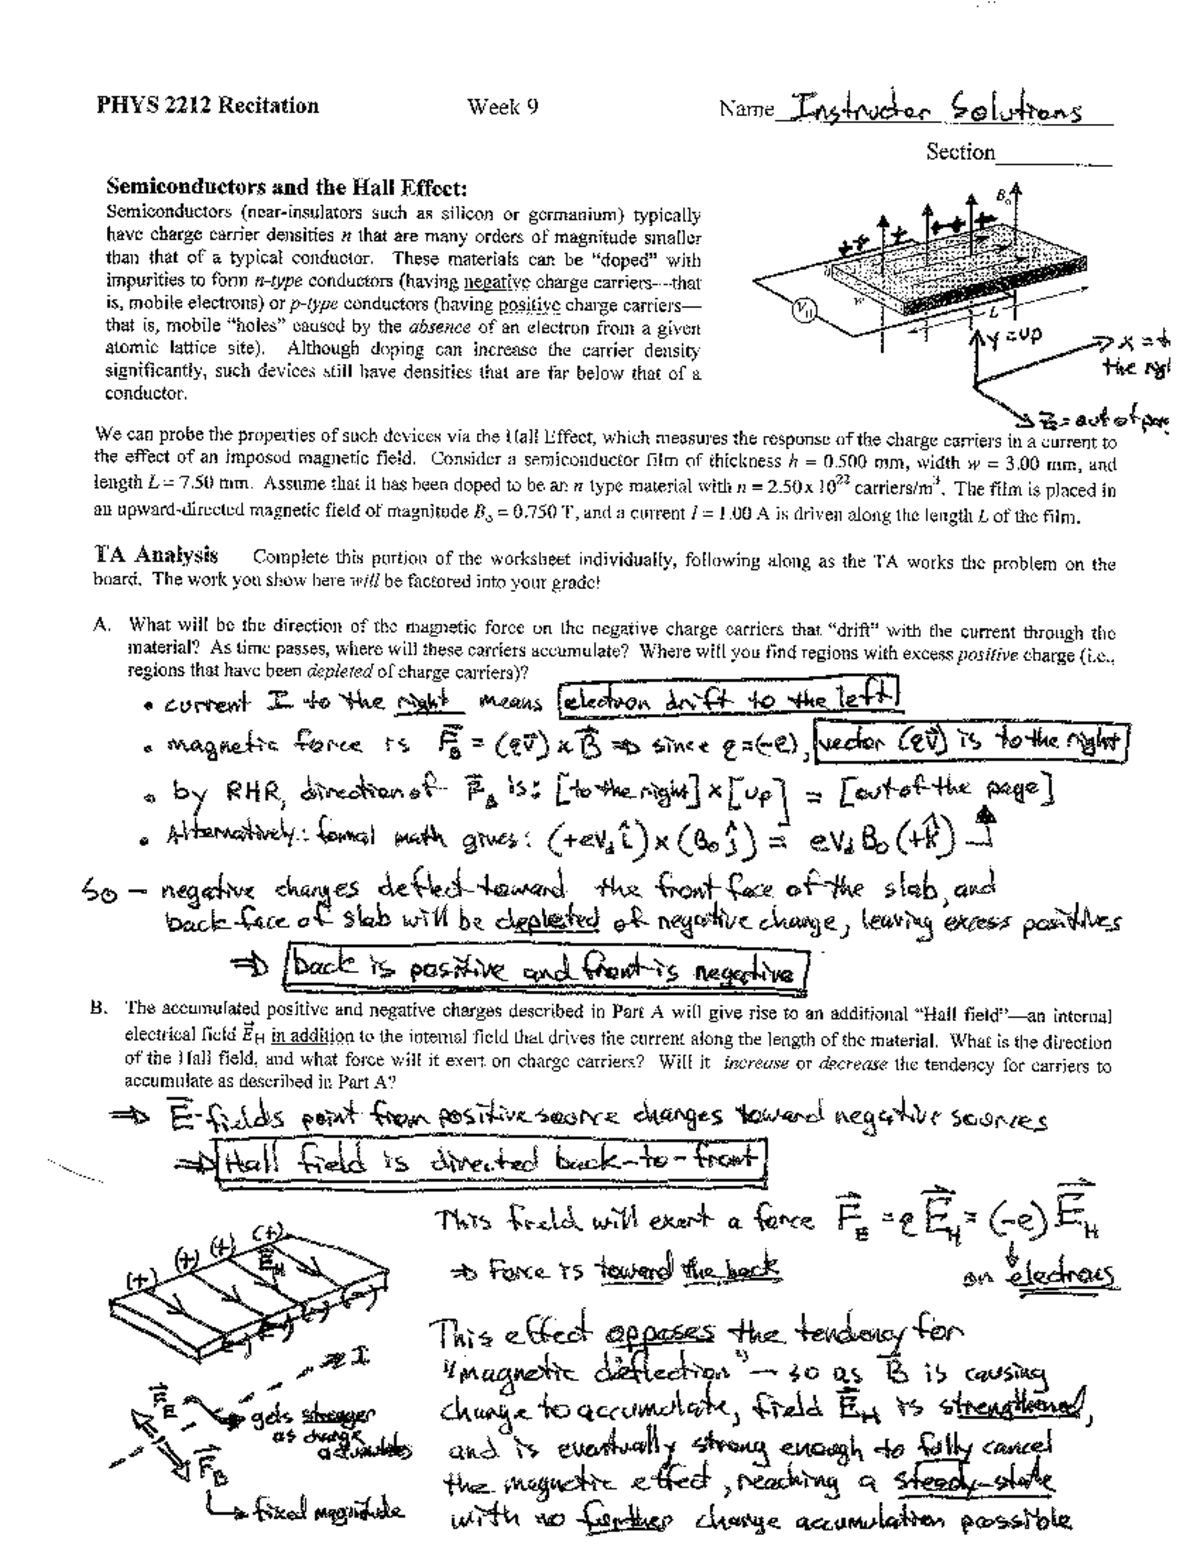 PHYS 2212 Recitation Week 9 Name Instructor Solutions
Section
Semiconductors and the Hall Effect:
Semiconductors (near-insulators such as silicon or germanium) typically
have charge carrier densities n that are many orders of magnitude smaller
than that of a typical conductor. These materials can be "doped" with
impurities to form n-type conductors (having negative charge carriers---that
is, mobile electrons) or p-type conductors (having positive charge carriers—
that is, mobile "holes" caused by the absence of an electron from a given
atomic lattice site). Although doping can increase the carrier density
significantly, such devices still have densities that are far below that of a
conductor.
B₀
++ + ++ +
h
w
V_H
L
y = up
x = t
the rig
z = out of page
We can probe the properties of such devices via the Hall Effect, which measures the response of the charge carriers in a current to
the effect of an imposed magnetic field. Consider a semiconductor film of thickness h = 0.500 mm, width w = 3.00 mm, and
length L = 7.50 mm. Assume that it has been doped to be an n type material with n = 2.50x10²² carriers/m³. The film is placed in
an upward-directed magnetic field of magnitude B₀ = 0.750 T, and a current I = 1.00 A is driven along the length L of the film.
TA Analysis Complete this portion of the worksheet individually, following along as the TA works the problem on the
board. The work you show here will be factored into your grade!
A. What will be the direction of the magnetic force on the negative charge carriers that "drift" with the current through the
material? As time passes, where will these carriers accumulate? Where will you find regions with excess positive charge (i.e.,
regions that have been depleted of charge carriers)?
• current I to the right means electron drift to the left
• magnetic force is F⃗_B = (qv⃗) × B⃗ ⇒ since q=(-e), vector (qv⃗) is to the right
• by RHR, direction of F⃗_B is: [to the right] × [up] = [out of the page]
• Alternatively: formal math gives: (+ev_d î) × (B₀ ĵ) = ev_d B₀ (+k̂)
So – negative charges deflect toward the front face of the slab, and
back face of slab will be depleted of negative charge, leaving excess positives
⇒ back is positive and front is negative
B. The accumulated positive and negative charges described in Part A will give rise to an additional "Hall field"—an internal
electrical field E⃗_H in addition to the internal field that drives the current along the length of the material. What is the direction
of the Hall field, and what force will it exert on charge carriers? Will it increase or decrease the tendency for carriers to
accumulate as described in Part A?
⇒ E⃗-fields point from positive source charges toward negative sources
⇒ Hall field is directed back-to-front
This field will exert a force F⃗_E = qE⃗_H = (-e) E⃗_H
⇒ Force is toward the back on electrons
This effect opposes the tendency for
"magnetic deflection" — so as B⃗ is causing
charge to accumulate, field E⃗_H is strengthened,
and is eventually strong enough to fully cancel
the magnetic effect, reaching a steady-state
with no further charge accumulation possible
(+) (+) (+) (+)
E⃗_H
(-) (-) (-) (-) (-)
I
F⃗_E
gets stronger
as charge
accumulates
F⃗_B
fixed magnitude